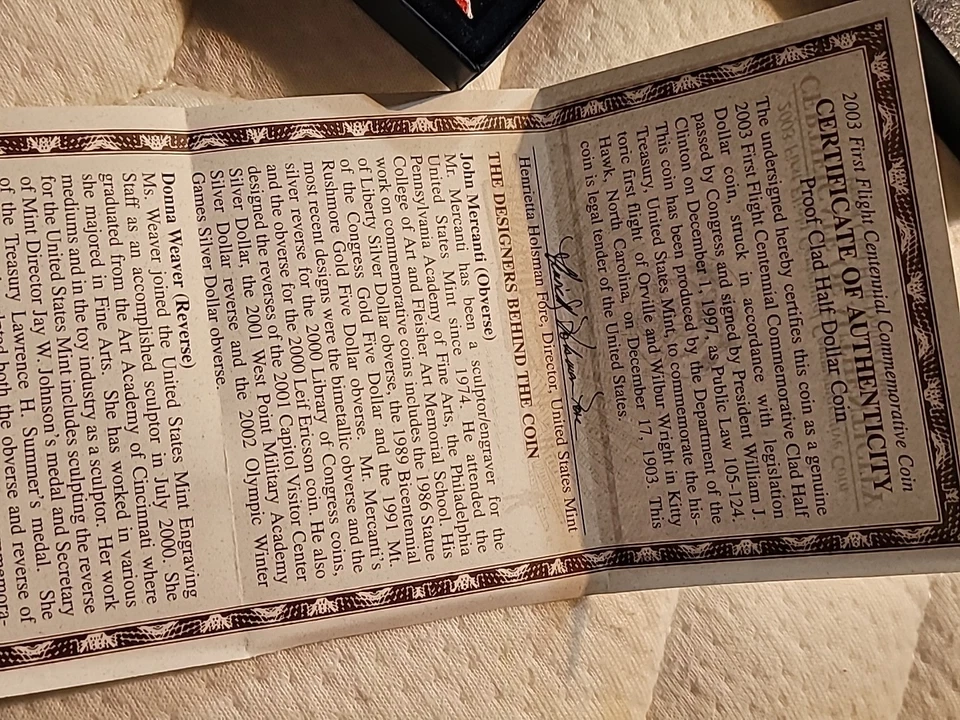 2003 First Flight Centennial Commemorative Coin
CERTIFICATE OF AUTHENTICITY
Proof Clad Half Dollar Coin
The undersigned hereby certifies this coin as a genuine
2003 First Flight Centennial Commemorative Clad Half
Dollar coin, struck in accordance with legislation
passed by Congress and signed by President William J.
Clinton on December 1, 1997, as Public Law 105-124.
This coin has been produced by the Department of the
Treasury, United States Mint, to commemorate the his-
toric first flight of Orville and Wilbur Wright in Kitty
Hawk, North Carolina, on December 17, 1903. This
coin is legal tender of the United States.
Henrietta Holsman Fore, Director, United States Mint
THE DESIGNERS BEHIND THE COIN
John Mercanti (Obverse)
Mr. Mercanti has been a sculptor/engraver for the
United States Mint since 1974. He attended the
Pennsylvania Academy of Fine Arts, the Philadelphia
College of Art and Fleisher Art Memorial School. His
work on commemorative coins includes the 1986 Statue
of Liberty Silver Dollar obverse, the 1989 Bicentennial
of the Congress Gold Five Dollar and the 1991 Mt.
Rushmore Gold Five Dollar obverse. Mr. Mercanti's
most recent designs were the bimetallic obverse and the
silver reverse for the 2000 Library of Congress coins,
and the obverse for the 2000 Leif Ericson coin. He also
designed the reverses of the 2001 Capitol Visitor Center
Silver Dollar, the 2001 West Point Military Academy
Silver Dollar reverse and the 2002 Olympic Winter
Games Silver Dollar obverse.
Donna Weaver (Reverse)
Ms. Weaver joined the United States Mint Engraving
Staff as an accomplished sculptor in July 2000. She
graduated from the Art Academy of Cincinnati where
she majored in Fine Arts. She has worked in various
mediums and in the toy industry as a sculptor. Her work
for the United States Mint includes sculpting the reverse
of Mint Director Jay W. Johnson's medal and Secretary
of the Treasury Lawrence H. Summer's medal. She
both the obverse and reverse of